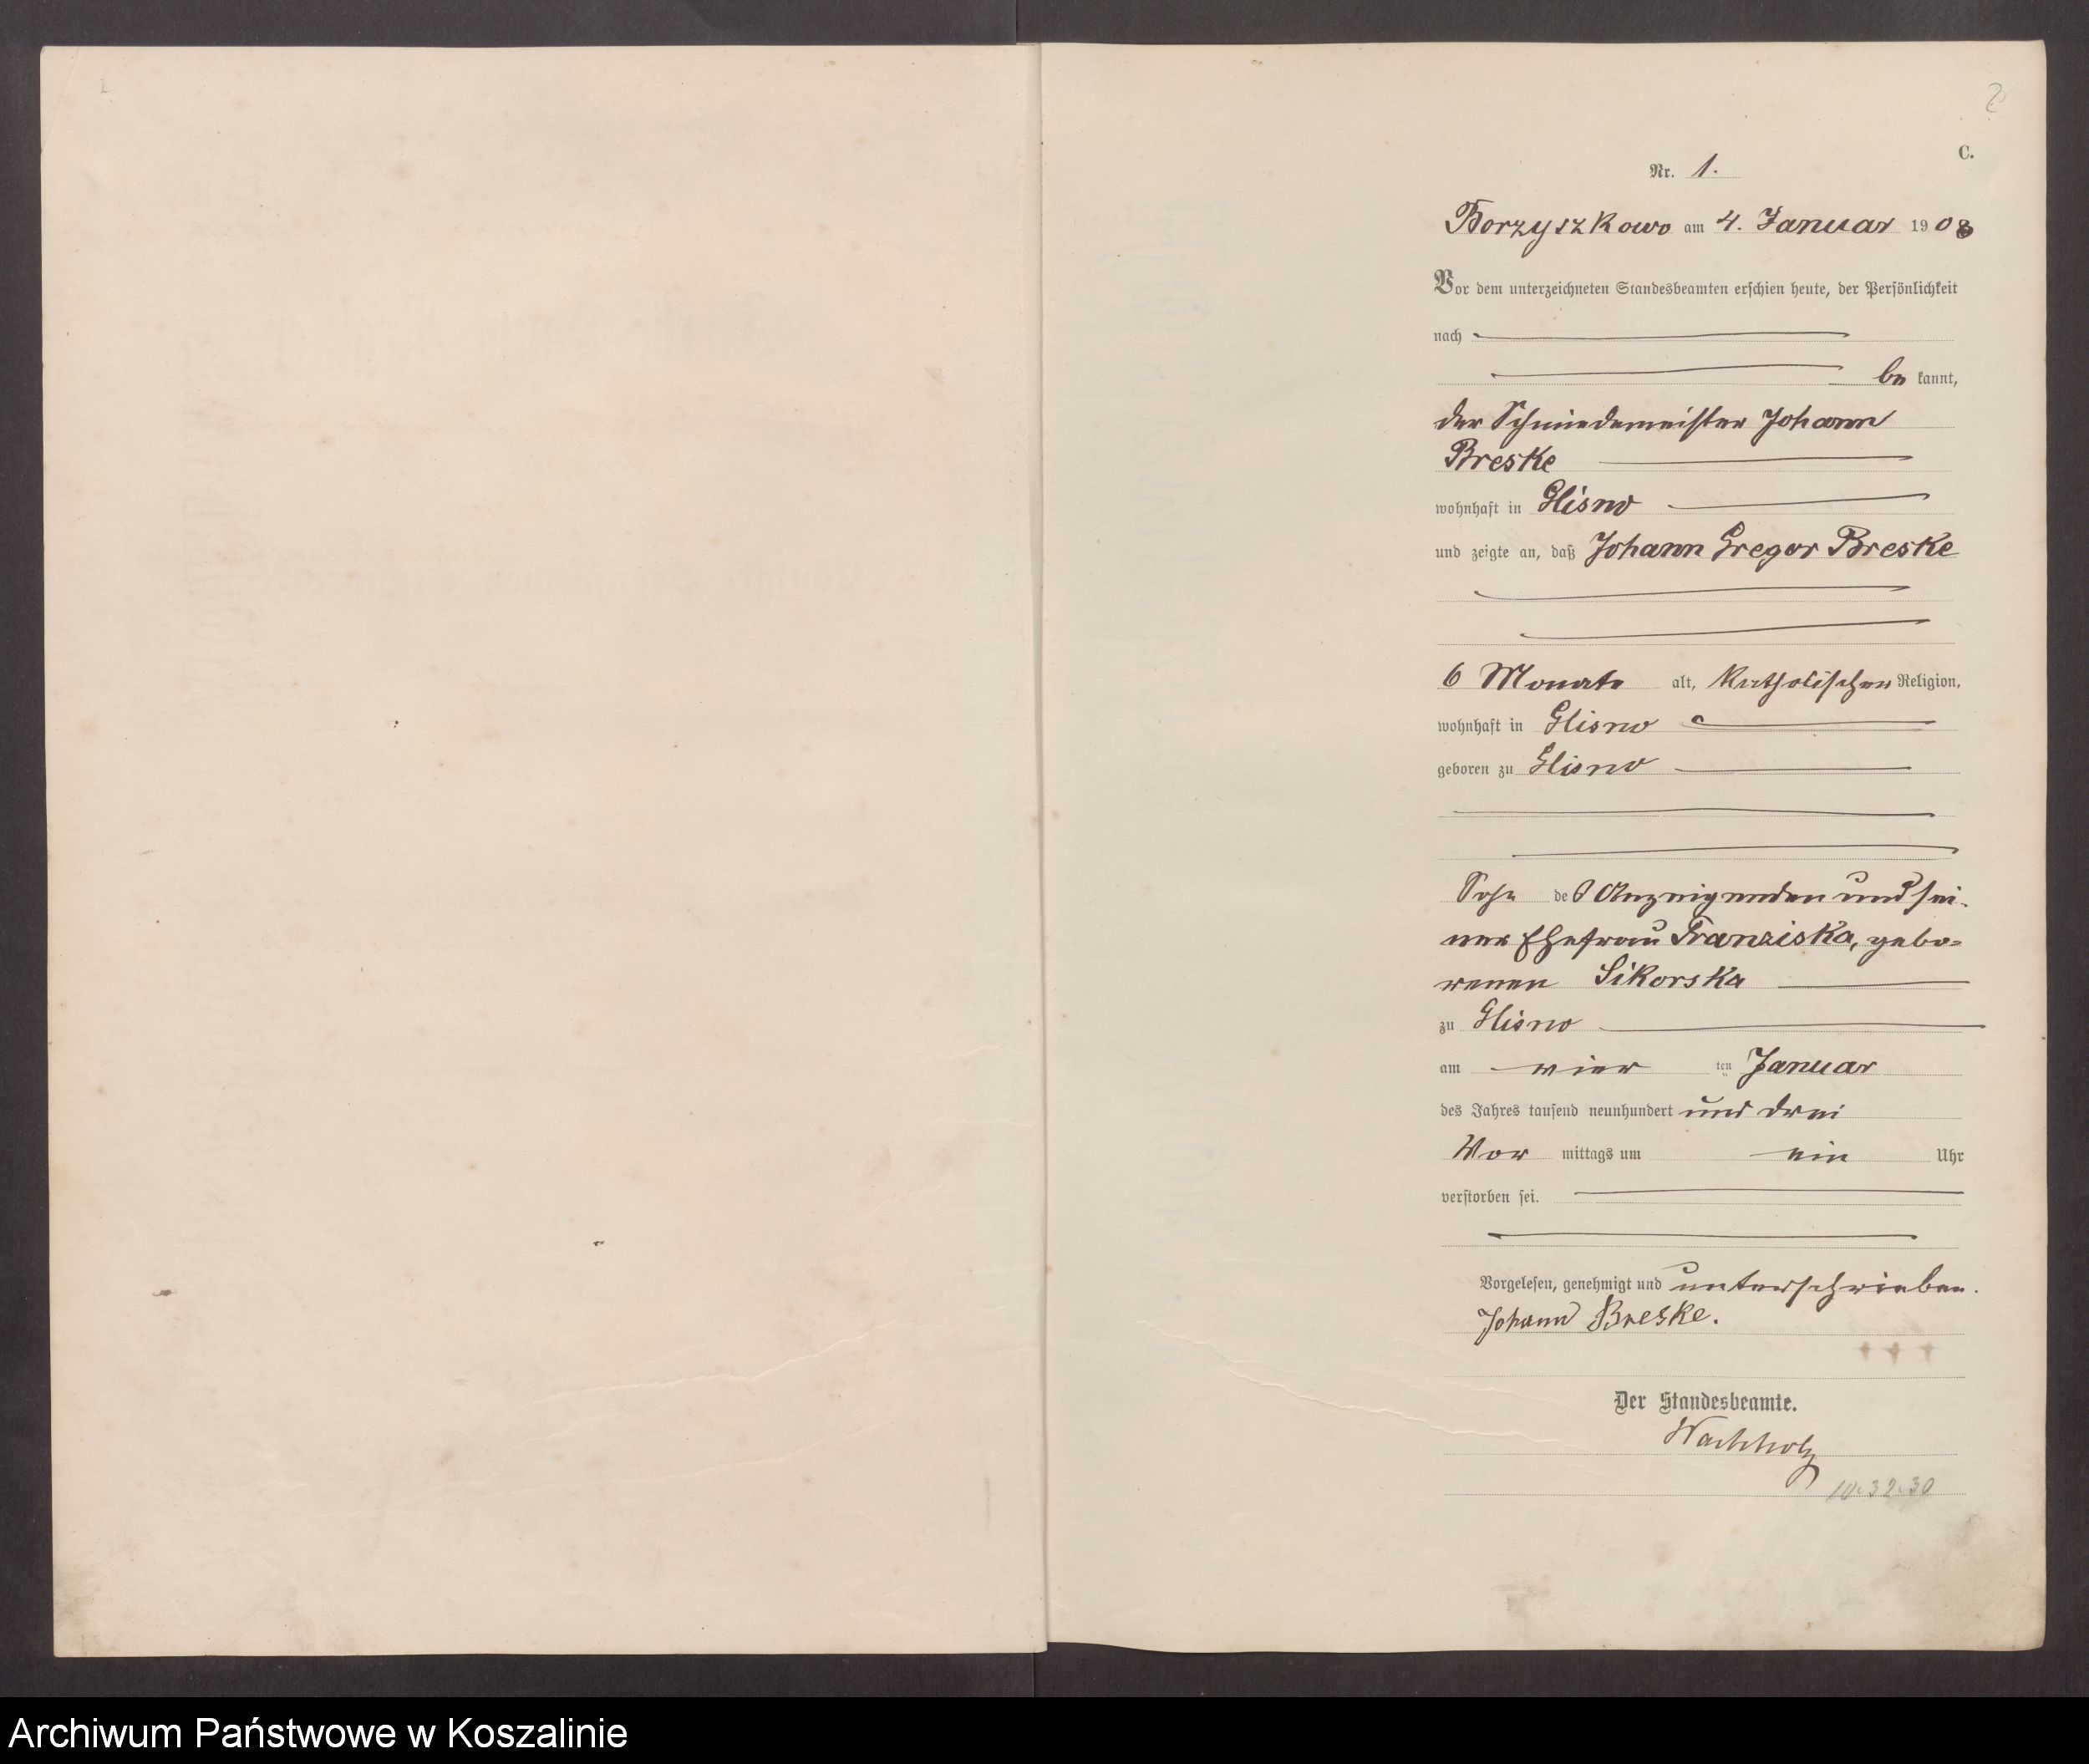 2
C.
Nr. 1.
Borzyszkowo am 4. Januar 1903
Vor dem unterzeichneten Standesbeamten erschien heute, der Persönlichkeit
nach
be kannt,
der Schmiedemeister Johann
Breske
wohnhaft in Glisno
und zeigte an, daß Johann Gregor Breske
6 Monate alt, katholischer Religion,
wohnhaft in Glisno
geboren zu Glisno
Sohn des Anzeigenden und sei-
ner Ehefrau Franziska, gebo-
renen Sikorska
zu Glisno
am vier ten Januar
des Jahres tausend neunhundert und drei
Vor mittags um ein Uhr
verstorben sei.
Vorgelesen, genehmigt und unterschrieben.
Johann Breske.
Der Standesbeamte.
Wachholz
10.32.30
Archiwum Państwowe w Koszalinie